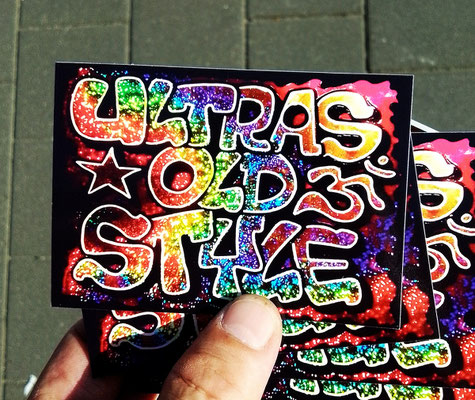 ULTRAS
OLD ૐ
STYLE